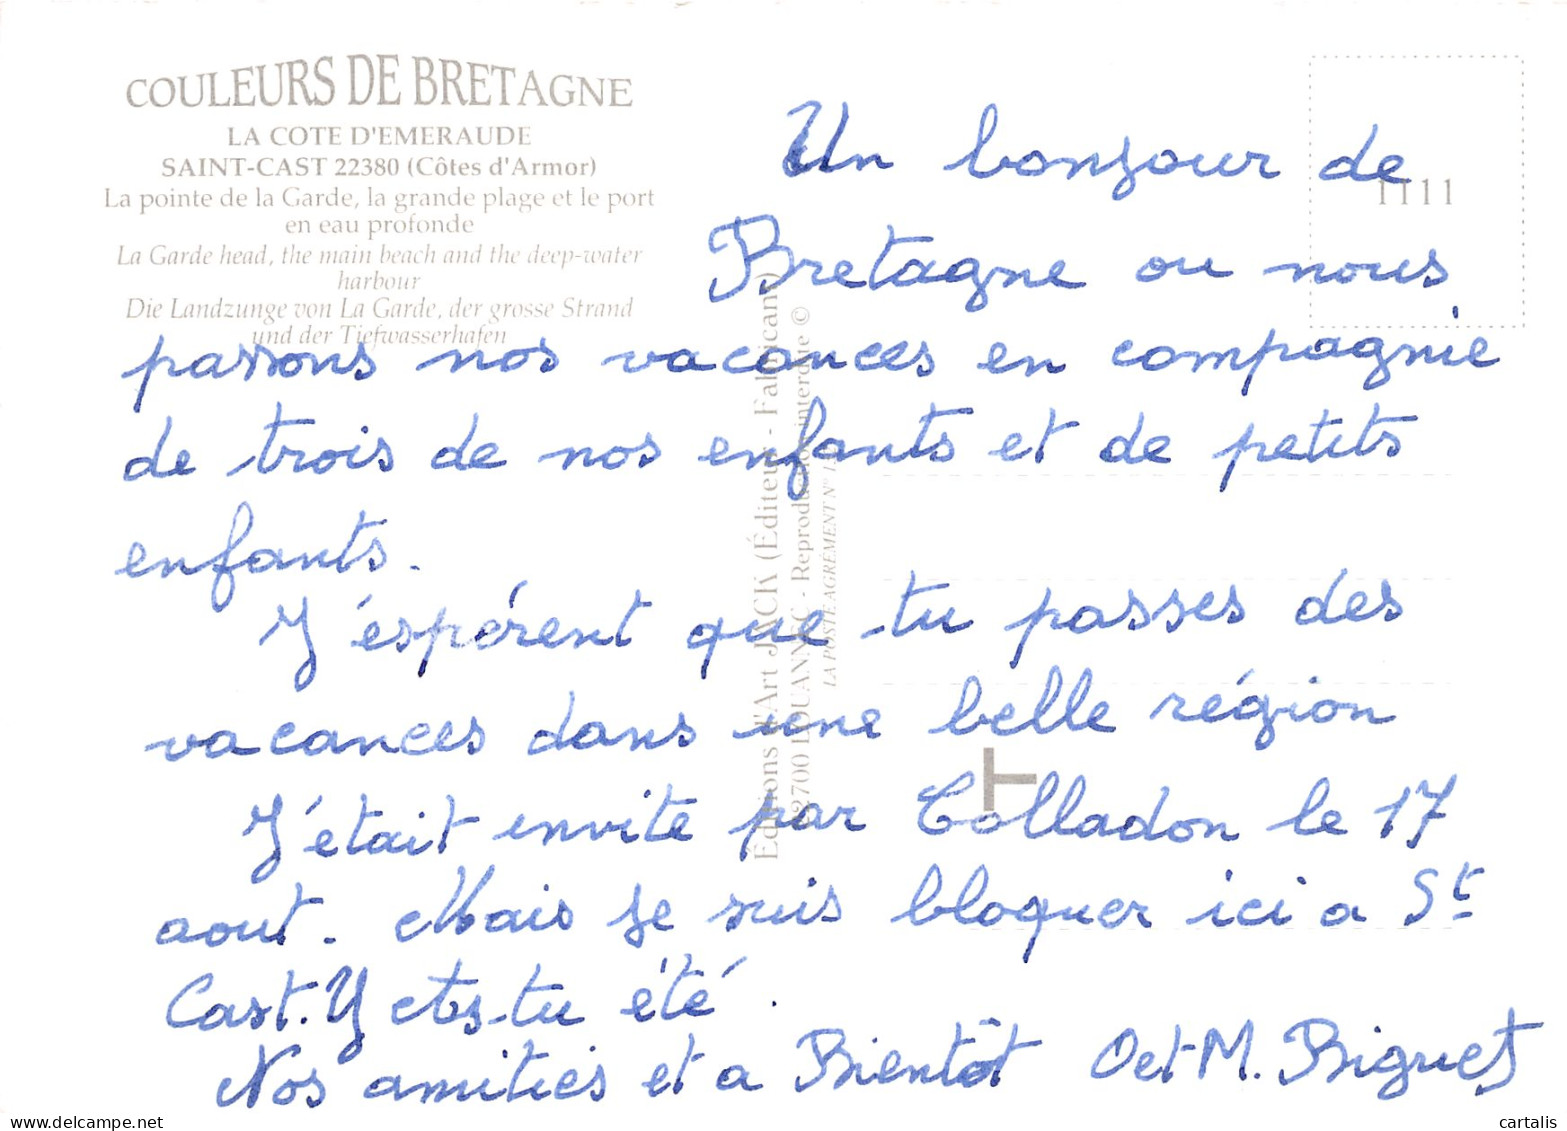 COULEURS DE BRETAGNE
LA COTE D'EMERAUDE
SAINT-CAST 22380 (Côtes d'Armor)
La pointe de la Garde, la grande plage et le port
en eau profonde
La Garde head, the main beach and the deep-water
harbour
Die Landzunge von La Garde, der grosse Strand
und der Tiefwasserhafen
1111
Un bonjour de
Bretagne ou nous
passons nos vacances en compagnie
de trois de nos enfants et de petits
enfants.
J'éspérent que tu passes des
vacances dans une belle région
J'était invité par Colladon le 17
aout. Mais je suis bloquer ici a St
Cast. Y etes-tu été.
Nos amitiés et a Bientôt O et M. Biguet
Éditions d'Art JACK (Éditeur - Fabricant)
LOUANNEC - Reproduction interdite ©
LA POSTE AGRÉMENT N°
www.delcampe.net
cartalis